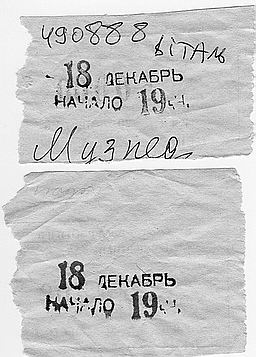 490888
ВІТАЛЬ
18 ДЕКАБРЬ
НАЧАЛО 19 ч.
18 ДЕКАБРЬ
НАЧАЛО 19 ч.